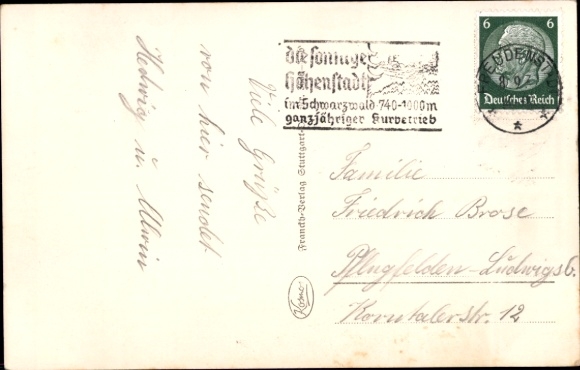 Viele Grüße
von hier sendet
Hedwig u. Alwin
die sonnige
Höhenstadt
im Schwarzwald 740-1000m
ganzjähriger Kurbetrieb
FREUDENSTADT
6 6
Deutsches Reich
Franckh-Verlag Stuttgart
Kosmos
Familie
Friedrich Brose
Pflugfelden-Ludwigsb.
Korntalerstr. 12